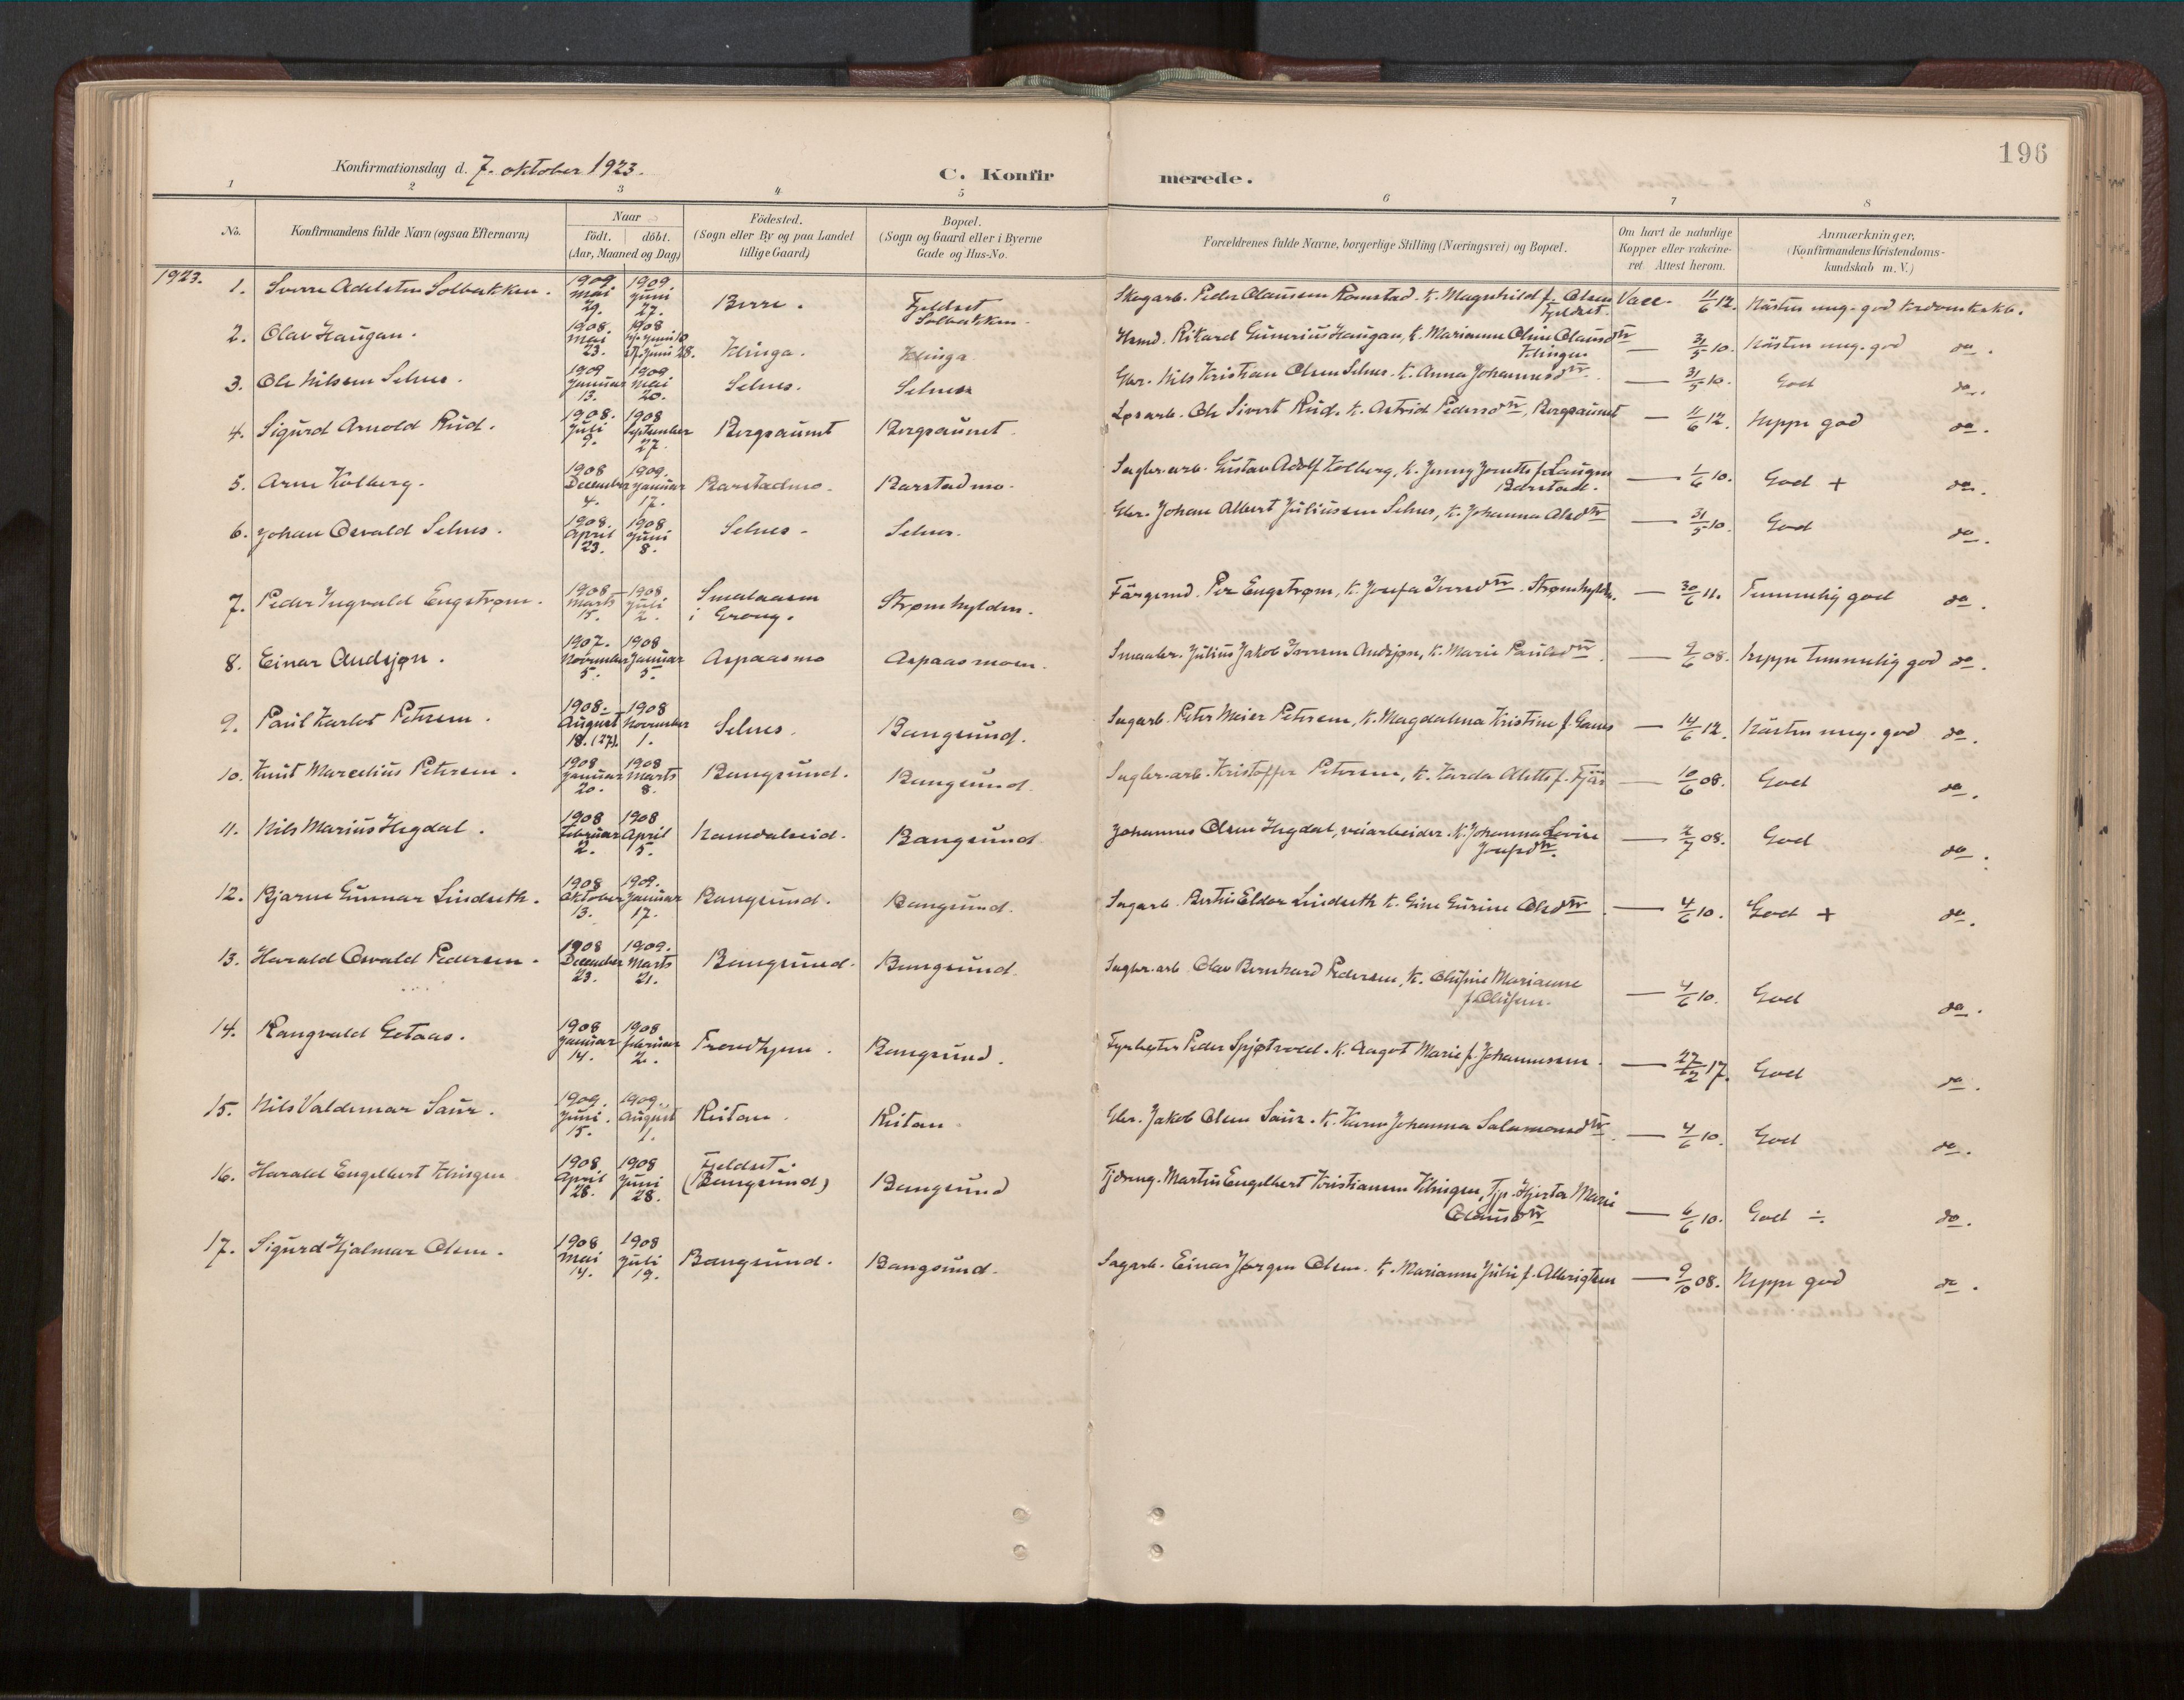 196
Konfirmationsdag d. 7. oktober 1923.
C. Konfirmerede.
1 2 3 4 5 6 7 8
No.
Konfirmandens fulde Navn (ogsaa Efternavn)
Naar
födt. döbt.
(Aar, Maaned og Dag)
Födested.
(Sogn eller By og paa Landet
tillige Gaard)
Bopæl.
(Sogn og Gaard eller i Byerne
Gade og Hus-No.
Forældrenes fulde Navne, borgerlige Stilling (Næringsvei) og Bopæl.
Om havt de naturlige
Kopper eller vakcine-
ret. Attest herom.
Anmærkninger,
(Konfirmandens Kristendoms-
kundskab m. V.)
1923. 1. Sverre Adelsten Solbakken. 1909. mai 29. 1909. juni 27. Berre. Fjeldset Solbakken. Skogarb. Peder Olaussen Romstad. K. Magnhild f. Olsen Fjeldset. Vacc. 11/6 12. Næsten meg. god krdomkskb.
2. Olav Haugan. 1908. mai 23. 1908 juni 28. Klinga. Klinga Hsmd. Rikard Haugan, K. Marianne Oline Olausdtr Klingen — 31/5 10. Næsten meg. god do.
3. Ole Nilssen Selnes. 1909 januar 13. 1909. mai 20. Selnes. Selnes Gbr. Nils Kristian Olsen Selnes. K. Anna Johannesdtr. — 31/5 10. God do.
4. Sigurd Arnold Rud. 1908. juli 9. 1908 September 27. Bergsaunet Bergsaunet. Løsarb. Ole Sivert Rud. K. Astrid Pedersdtr, Bergsaunet — 11/6 12. Neppe god do.
5. Arne Kolberg. 1908 December 4. 1909. januar 17. Barstadmo. Barstadmo. Sagbr.arb. Gustav Adolf Kolberg, K. Jenny f. Laugen Barstad. — 1/6 10. God + do.
6. Johan Osvald Selnes. 1908. April 23. 1908. juni 8. Selnes. Selnes. Gbr. Johan Albert Juliussen Selnes, K. Johanna Olsdtr — 31/5 10. God do.
7. Peder Ingvald Engstrøm. 1908 marts 15. 1908 juli 2. Smalaasen i Grong. Strømhylden. Færgemd. Per Engstrøm, K. Josefa Iversdtr. Strømhylden. — 30/6 11. Temmelig god do.
8. Einar Audsjøn. 1907. November 5. 1908 januar 5. Aspaasmo Aspaasmoen. Smaabr. Julius Jakob Iversen Audsjøn, K. Marie Paulsdtr. — 9/6 08. Neppe temmelig god do.
9. Paul Karlot Petersen. 1908. August 18. (27). 1908 November 1. Selnes. Bangsund. Sagarb. Peter Meier Petersen, K. Magdalena Kristine f. — 14/6 12. Næsten meg. god do.
10. Knut Marcelius Petersen. 1908 januar 20. 1908 marts 8. Bangsund. Bangsund. Sagbr.arb. Kristoffer Petersen, K. Karda Alette f. Fjær — 10/6 08. God do.
11. Nils Marius Hegdal. 1908 Februar 2. 1908 April 5. Namdalseid. Bangsund Johannes Olsen Hegdal, veiarbeider. K. Johanna Lovise Josefsdtr. — 2/7 08. God do.
12. Bjarne Gunnar Lindseth. 1908 Oktober 13. 1909. januar 17. Bangsund. Bangsund. Sagarb. Bertius Eldor Lindseth K. Gine Gurine Olsdtr. — 4/6 10. God + do.
13. Harald Osvald Pedersen. 1908 December 23. 1909. Marts 21. Bangsund. Bangsund. Sagbr.arb. Olav Bernhard Pedersen, K. Olufine Marianne f. Olufsen. — 4/6 10. God do.
14. Rangvald Getaas. 1908 januar 14. 1908 februar 2. Trondhjem. Bangsund. Fyrbøter Peder Spjøtvold. K. Aagot Marie f. Johannessen. — 27/2 17. God do.
15. Nils Valdemar Saur. 1909. juni. 15. 1909. August 1. Reitan. Reitan Gbr. Jakob Olsen Saur. K. Karen Johanna Salamonsdtr. — 4/6 10. God do.
16. Harald Engelbert Klingen 1908 April 28. 1908 juni 28. Fjeldset. (Bangsund) Bangsund Tjdreng. Martin Engelbert Kristiansen Klingen, Tjp. Hjerta Marie Olausdtr — 6/6 10. God ÷. do.
17. Sigurd Hjalmar Olsen. 1908 mai 14. 1908 juli 19. Bangsund. Bangsund. Sagarb. Einar Jørgen Olsen. K. Marianne Julie f. Albrigtsen — 9/10 08. Neppe god do.